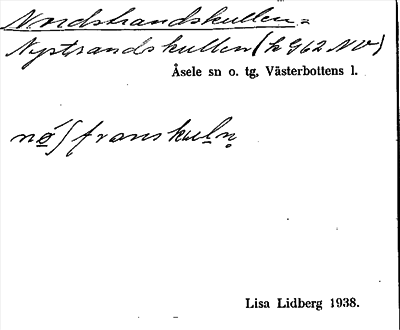 Nordstrandskullen =
Nystrandskullen (h 962 NV)
Åsele sn o. tg, Västerbottens l.
Lisa Lidberg 1938.